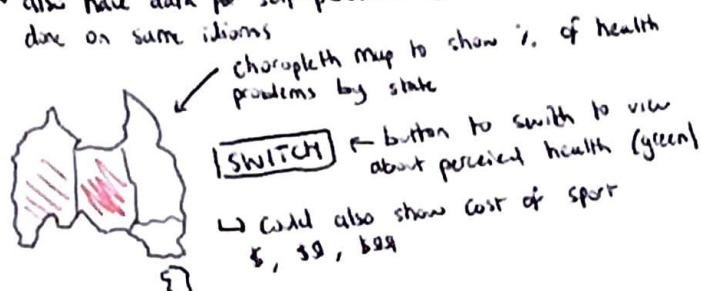 also have data for self p
done on same idioms
choropleth map to show % of health
problems by state
SWITCH
← button to swith to view
about perceived health (green)
↳ could also show cost of sport
$, $$, $$$